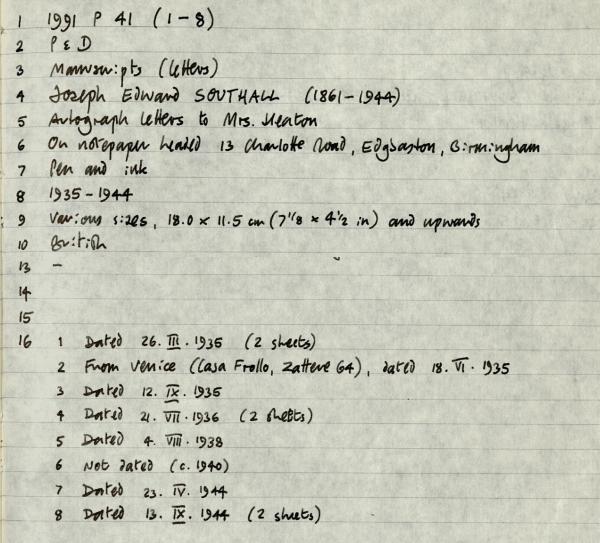 1 1991 P 41 (1-8)
2 P & D
3 Manuscripts (letters)
4 Joseph Edward SOUTHALL (1861-1944)
5 Autograph letters to Mrs. Neaton
6 On notepaper headed 13 Charlotte Road, Edgbaston, Birmingham
7 Pen and ink
8 1935-1944
9 Various sizes, 18.0 x 11.5 cm (7 1/8 x 4 1/2 in) and upwards
10 British
13 -
14
15
16 1 Dated 26. III. 1935 (2 sheets)
2 From Venice (Casa Frollo, Zattere 64), dated 18. VI. 1935
3 Dated 12. IX. 1935
4 Dated 21. VII. 1936 (2 sheets)
5 Dated 4. VIII. 1938
6 Not dated (c. 1940)
7 Dated 23. IV. 1944
8 Dated 13. IX. 1944 (2 sheets)